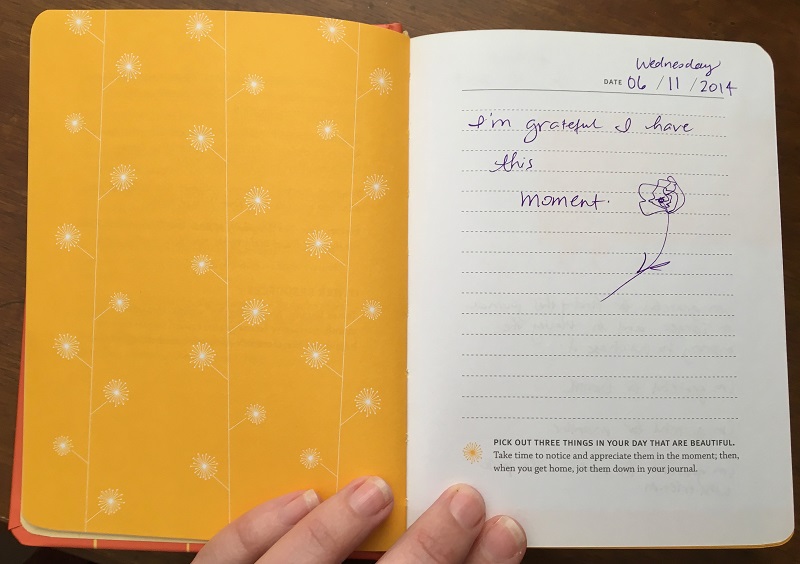 Wednesday
DATE 06 / 11 / 2014
I'm grateful I have
this
moment.
PICK OUT THREE THINGS IN YOUR DAY THAT ARE BEAUTIFUL.
Take time to notice and appreciate them in the moment; then,
when you get home, jot them down in your journal.